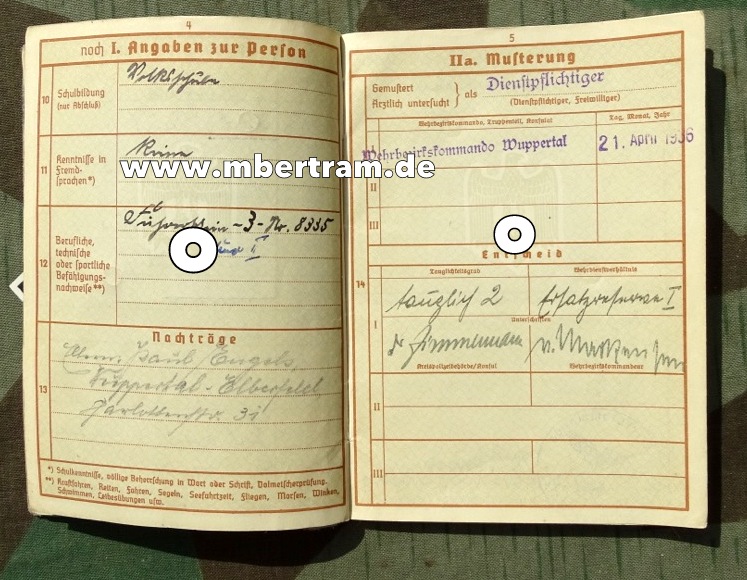 4
noch I. Angaben zur Person
10
Schulbildung
(nur Abschluß)
Volksschule
11
Kenntnisse in
Fremd-
sprachen*)
Keine
www.mbertram.de
12
Berufliche,
technische
oder sportliche
Befähigungs-
nachweise**)
Führerschein -3- Nr. 8335
Nachträge
13
Paul Engels,
Wuppertal-Elberfeld
*) Schulkenntnisse, völlige Beherrschung in Wort oder Schrift, Dolmetscherprüfung.
**) Kraftfahren, Reiten, Fahren, Segeln, Seefahrtzeit, Fliegen, Morsen, Winken,
Schwimmen, Leibesübungen usw.
5
IIa. Musterung
Gemustert
Ärztlich untersucht } als Dienstpflichtiger
(Dienstpflichtiger, Freiwilliger)
Wehrbezirkskommando, Truppenteil, Konsulat
Tag, Monat, Jahr
Wehrbezirkskommando Wuppertal
21. April 1936
II
III
Entscheid
14
Tauglichkeitsgrad
Wehrdienstverhältnis
tauglich 2
Ersatzreserve I
I
Unterschriften
Dr Zimmermann
v. Mackensen
Kreispolizeibehörde/Konsul
Wehrbezirkskommandeur
II
III